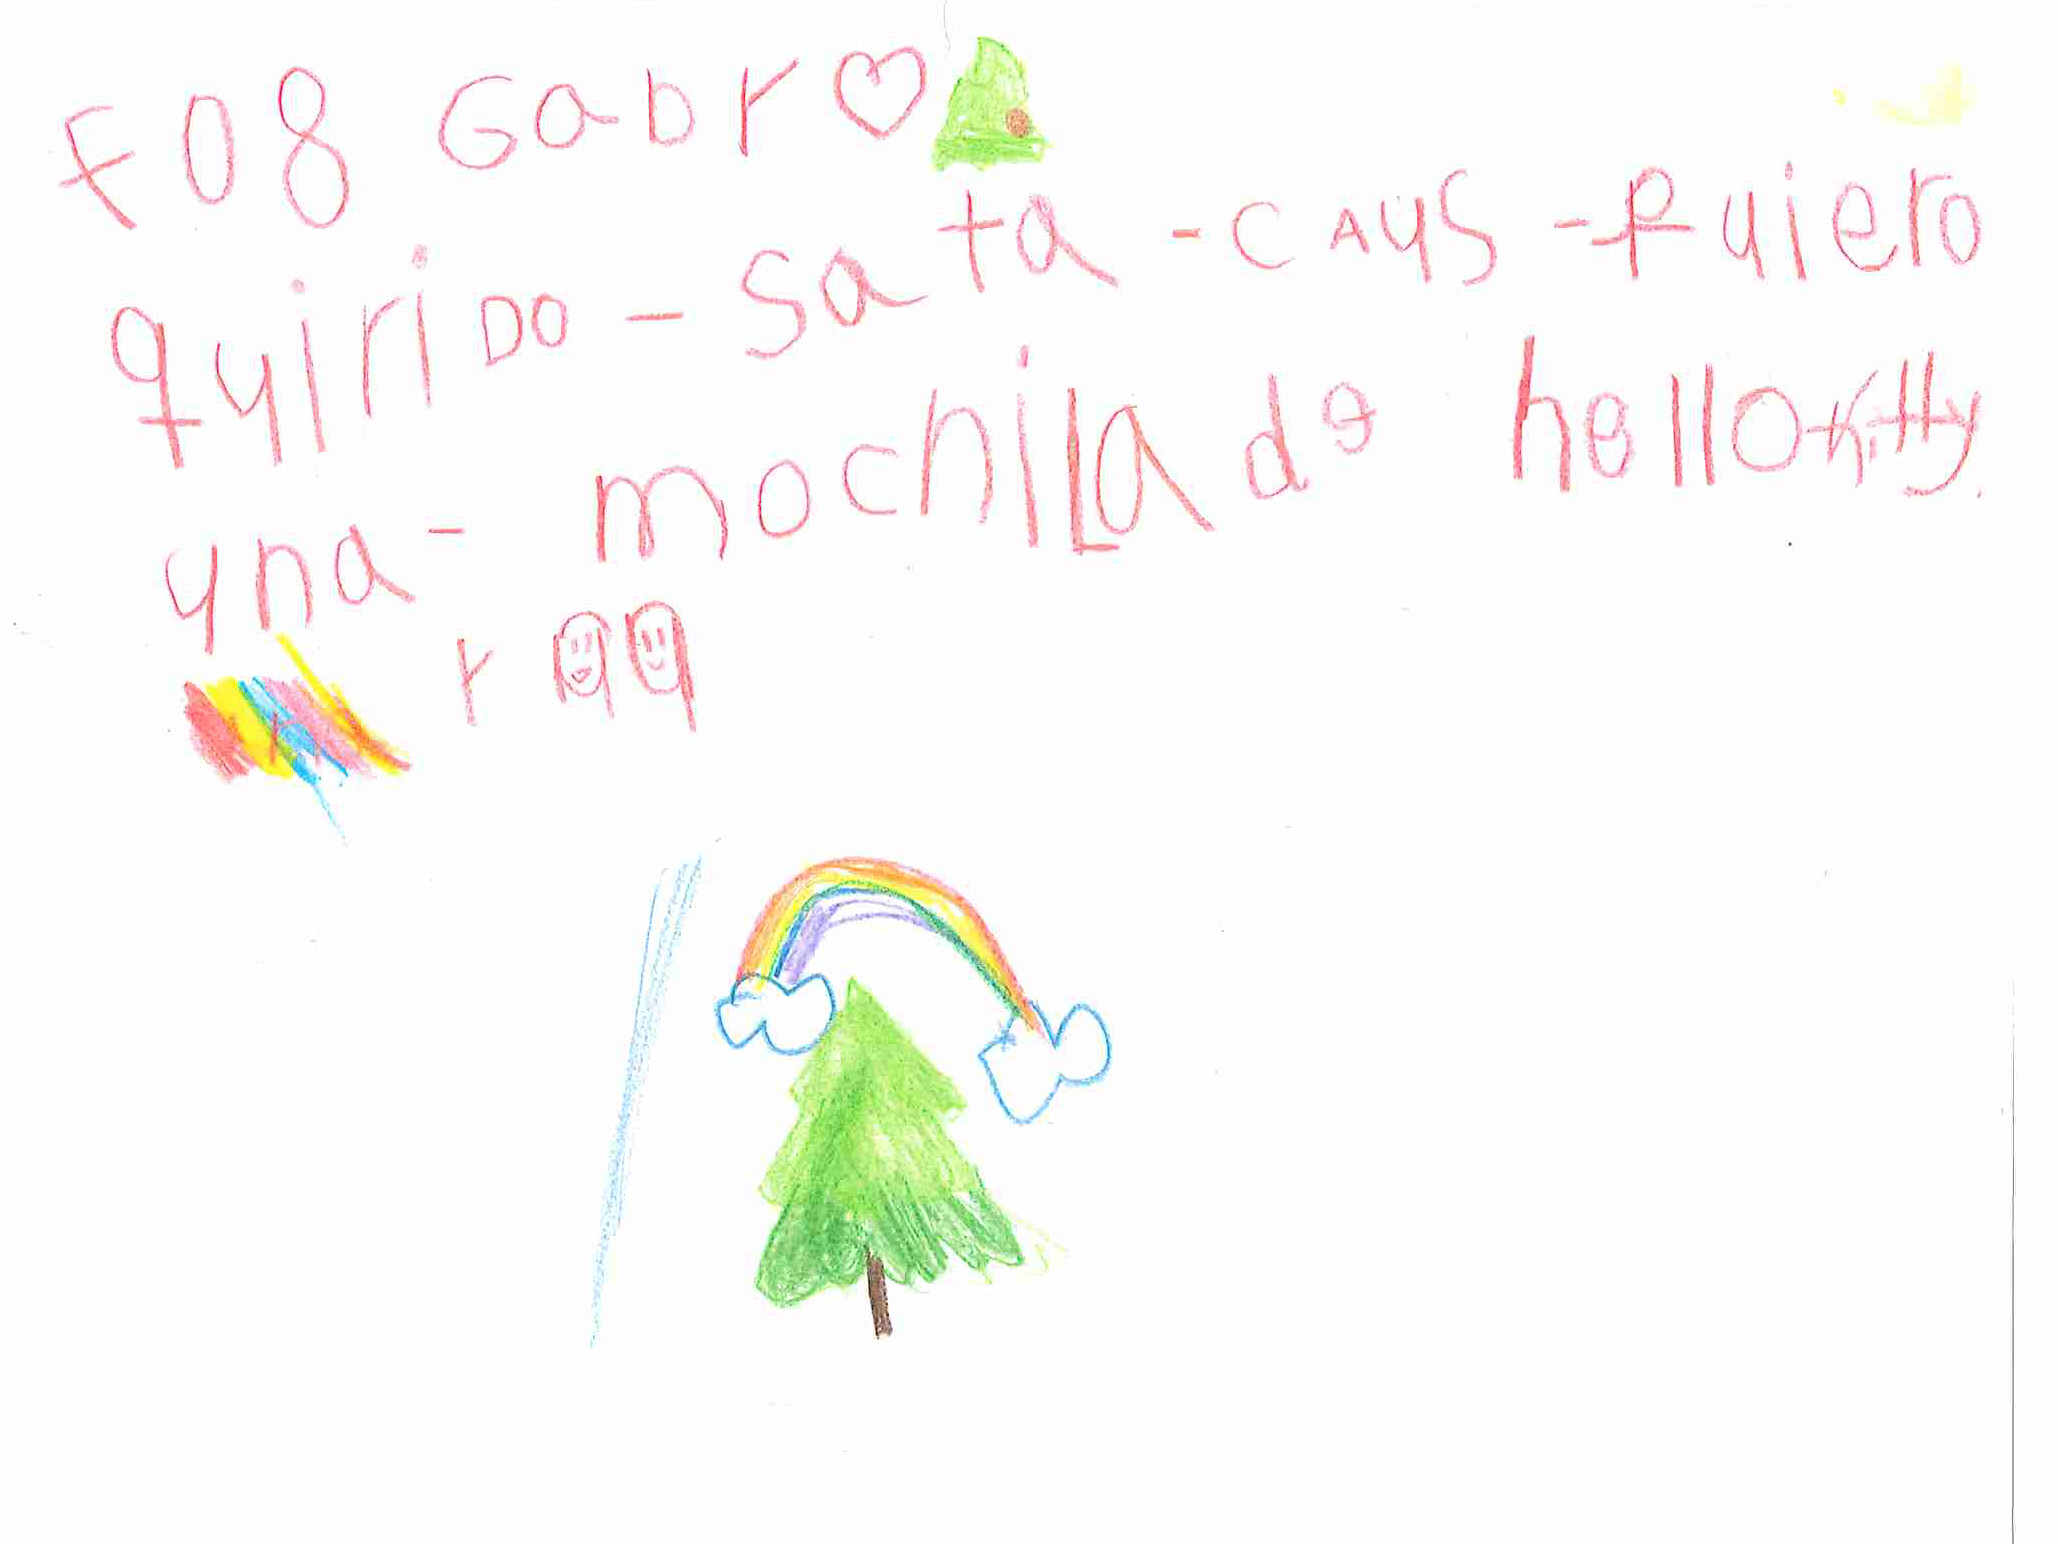 F08 Gabr
quirido - sata - cAus - quiero
una - mochila de hellokitty